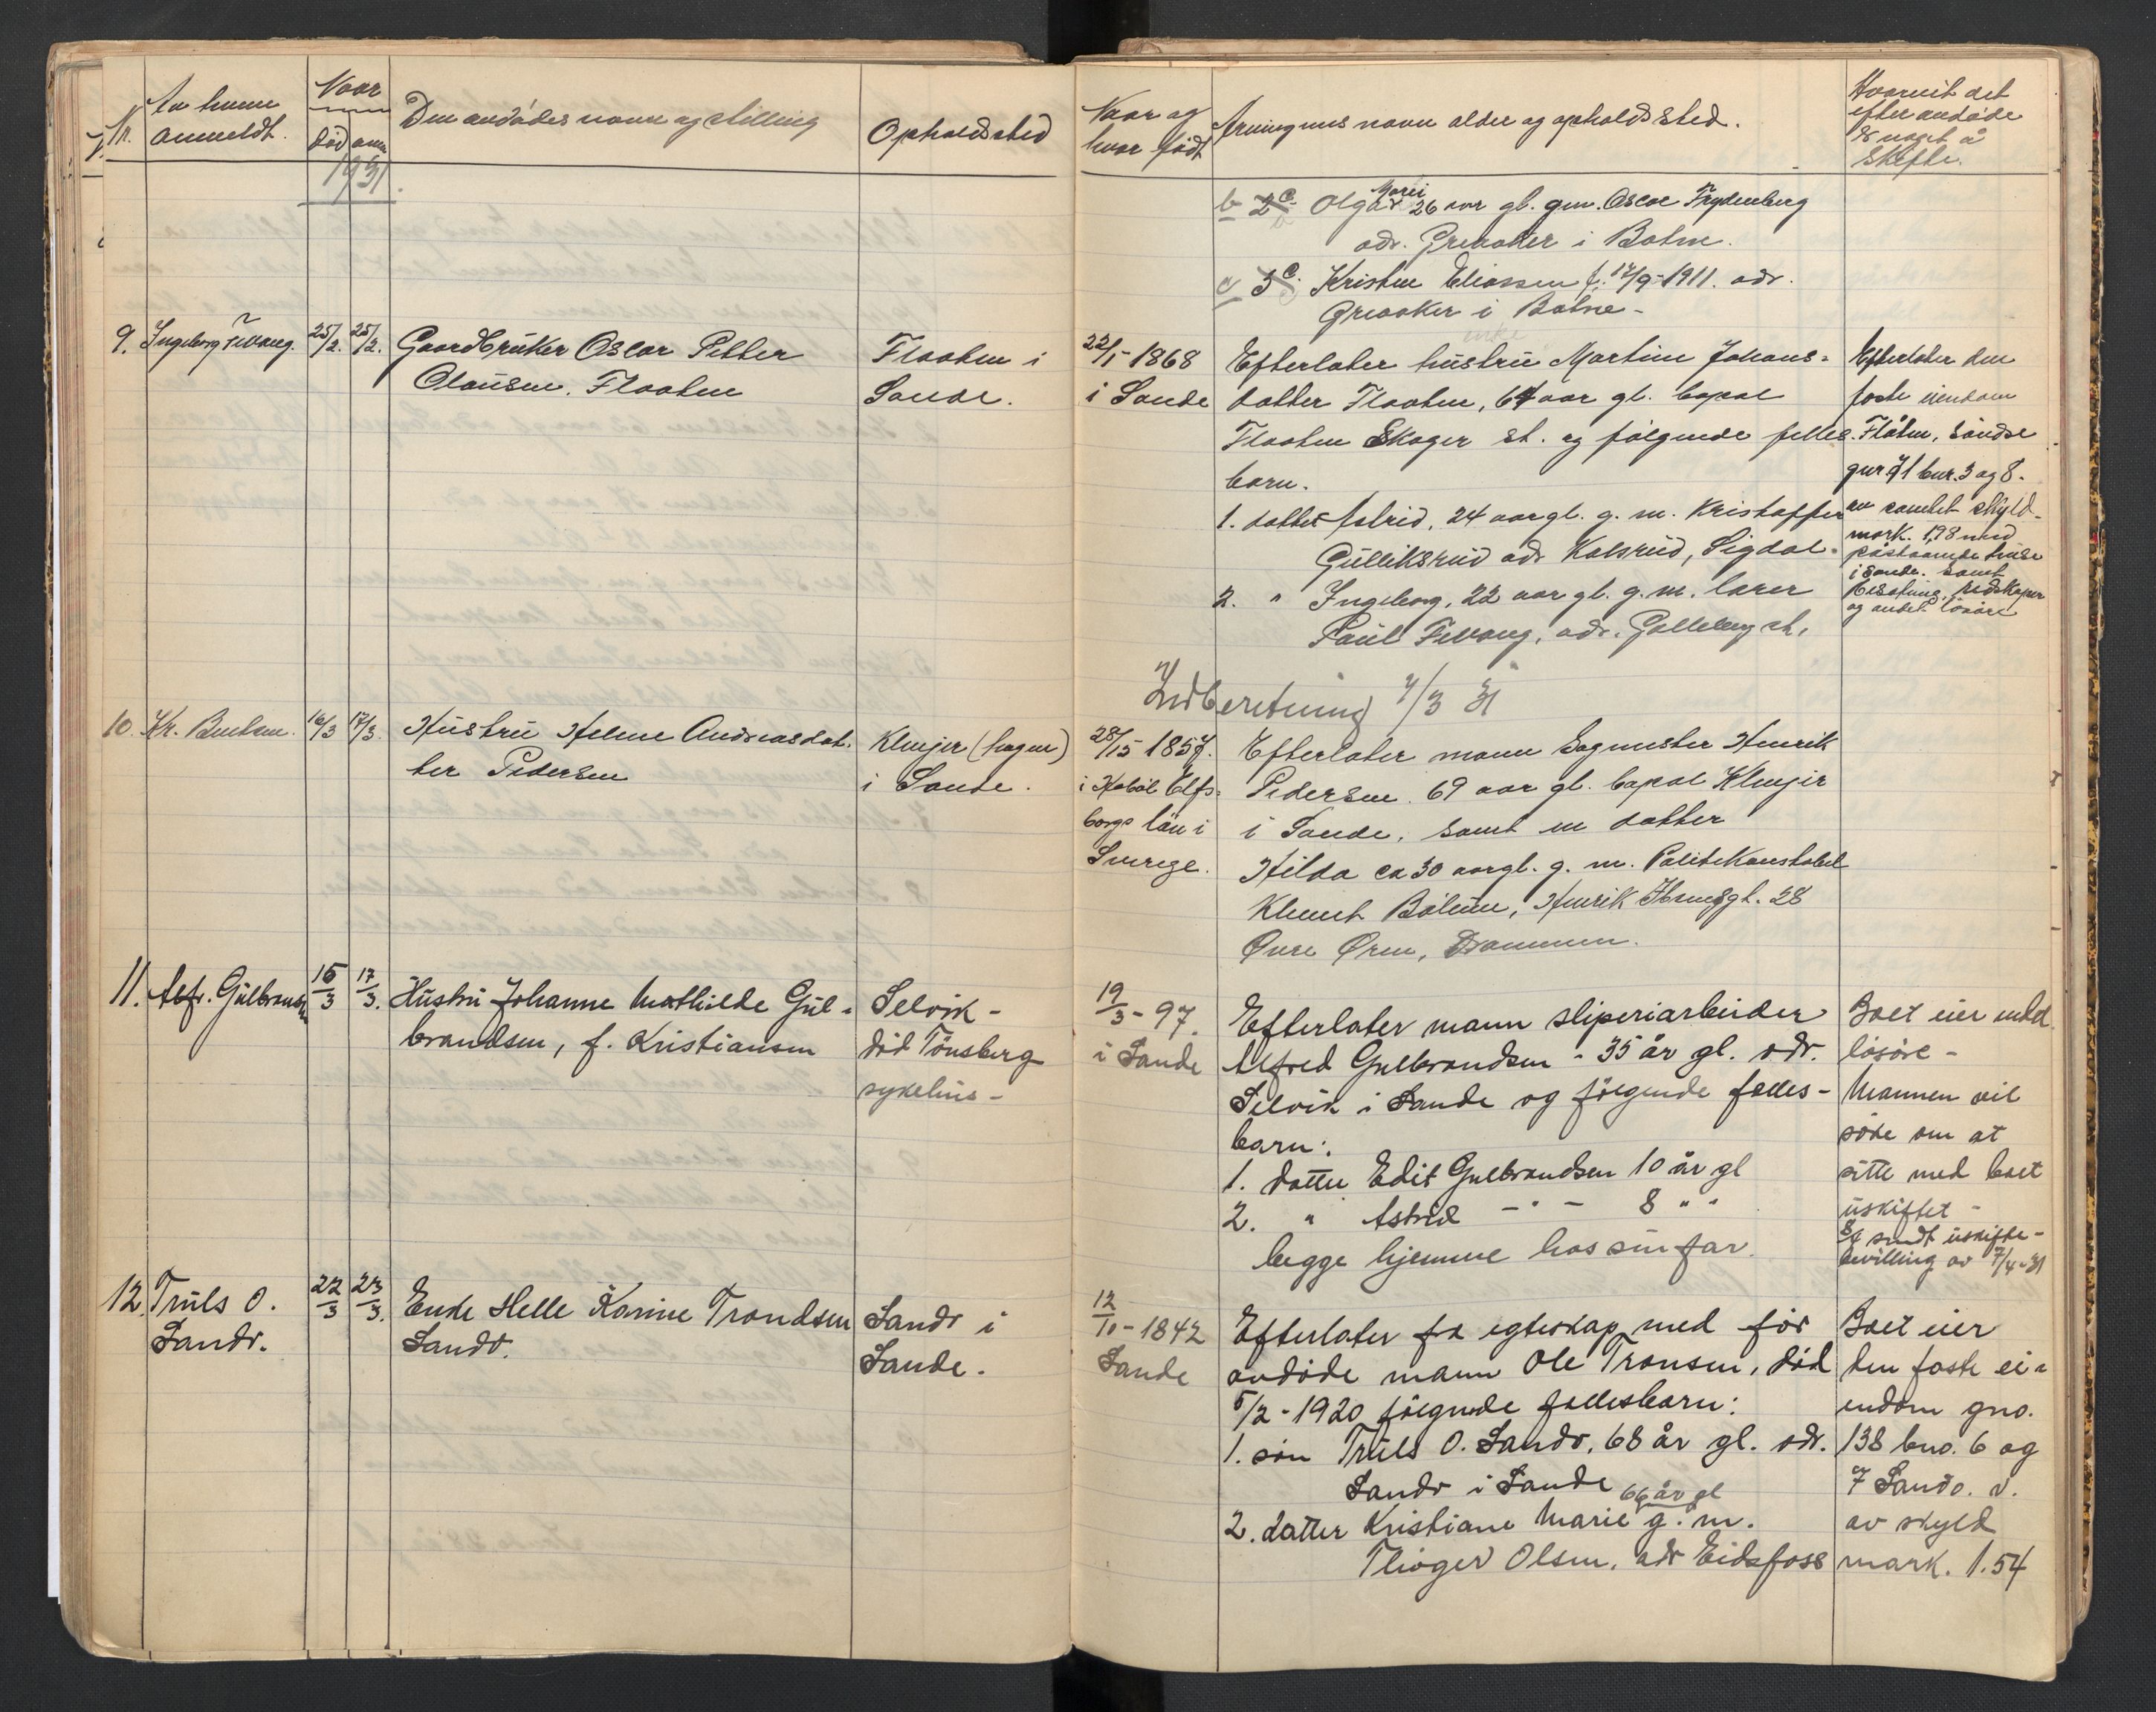 Nr.
Av hvem
anmeldt.
Naar
død anm
Den avdødes navn og stilling
Opholdssted
Naar og
hvor født
Arvingenes navn alder og opholdssted.
Hvorvidt det
efter avdøde
er noget å
skifte.
1931.
b 2 c. Olga Marie 26 aar gl. gm. Oscar Frydenberg
adr. Greaaker i Botne.
c 3 c. Kristen Eliassen f. 17/9-1911. adr.
Greaaker i Botne-
9. Ingeborg Fevang.
25/2. 25/2.
Gaardbruker Oscar Petter
Olausen. Flaaten
Flaaten i
Sande.
22/1-1868
i Sande
Efterlater hustru Martine Johans-
datter Flaaten, 64 aar gl. bopæl
Flaaten Skoger st. og følgende felles
barn.
1. datter Astrid, 24 aar gl. g. m. Kristoffer
Gulliksrud adr Kolsrud, Sigdal.
2. " Ingeborg, 22 aar gl. g. m. lærer
Paul Fevang, adr. Galleberg st.
Efterlater den
faste eiendom
Flåten, Søndre
gnr 71 bnr. 3 og 8.
av samlet skyld-
mark. 1,98 med
påstaaende huse
i Sande. samt
besetning, redskaper
og andet løsøre
Indberetning 7/3 31
10. Kr. Bentsen.
16/3 17/3.
Hustru Helene Andreasdat.
ter Pedersen
Klevjer (hagen)
i Sande.
28/15 1857.
i Købøl Elfs-
borgs län i
Sverige.
Efterlater mann Sagmester Henrik
Pedersen. 69 aar gl. bopæl Klevjer
i Sande. samt en datter
Hilda ca 30 aar gl. g. m. Politikonstabel
Klemet Bølum, Henrik Ibsensgt. 28
Øvre Øren, Drammen.
11. Alfr. Gulbrandsen
15/3 17/3.
Hustru Johanne Mathilde Gul-
brandsen, f. Kristiansen
Selvik-
død Tønsberg
sykehus-
19/3-97.
i Sande
Efterlater mann sliperiarbeider
Alfred Gulbrandsen - 35 år gl. adr.
Selvik i Sande og følgende felles-
barn:
1. datter Edit Gulbrandsen 10 år gl
2. " Astrid -"- 8 " "
begge hjemme hos sin far.
Boet eier endel
løsøre-
Mannen vil
søke om at
sitte med boet
uskiftet-
8/4 sendt uskifte-
bevilling av 7/4-31
12. Truls O.
Sandø.
22/3 23/3.
Enke Helle Karine Trondsen
Sandø.
Sandø i
Sande.
12/10-1842
Sande
Efterlater fra egteskap med før
avdøde mann Ole Tronsen, død
5/2-1920 følgende fellesbarn:
1. søn Truls O. Sandø, 68 år gl. adr.
Sandø i Sande
66 år gl
2. datter Kristiane Marie g. m.
Thoger Olsen, adr Eidsfoss
Boet eier
den faste ei-
endom gno.
138 bno. 6 og
7 Sandø. v.
av skyld
mark. 1.54